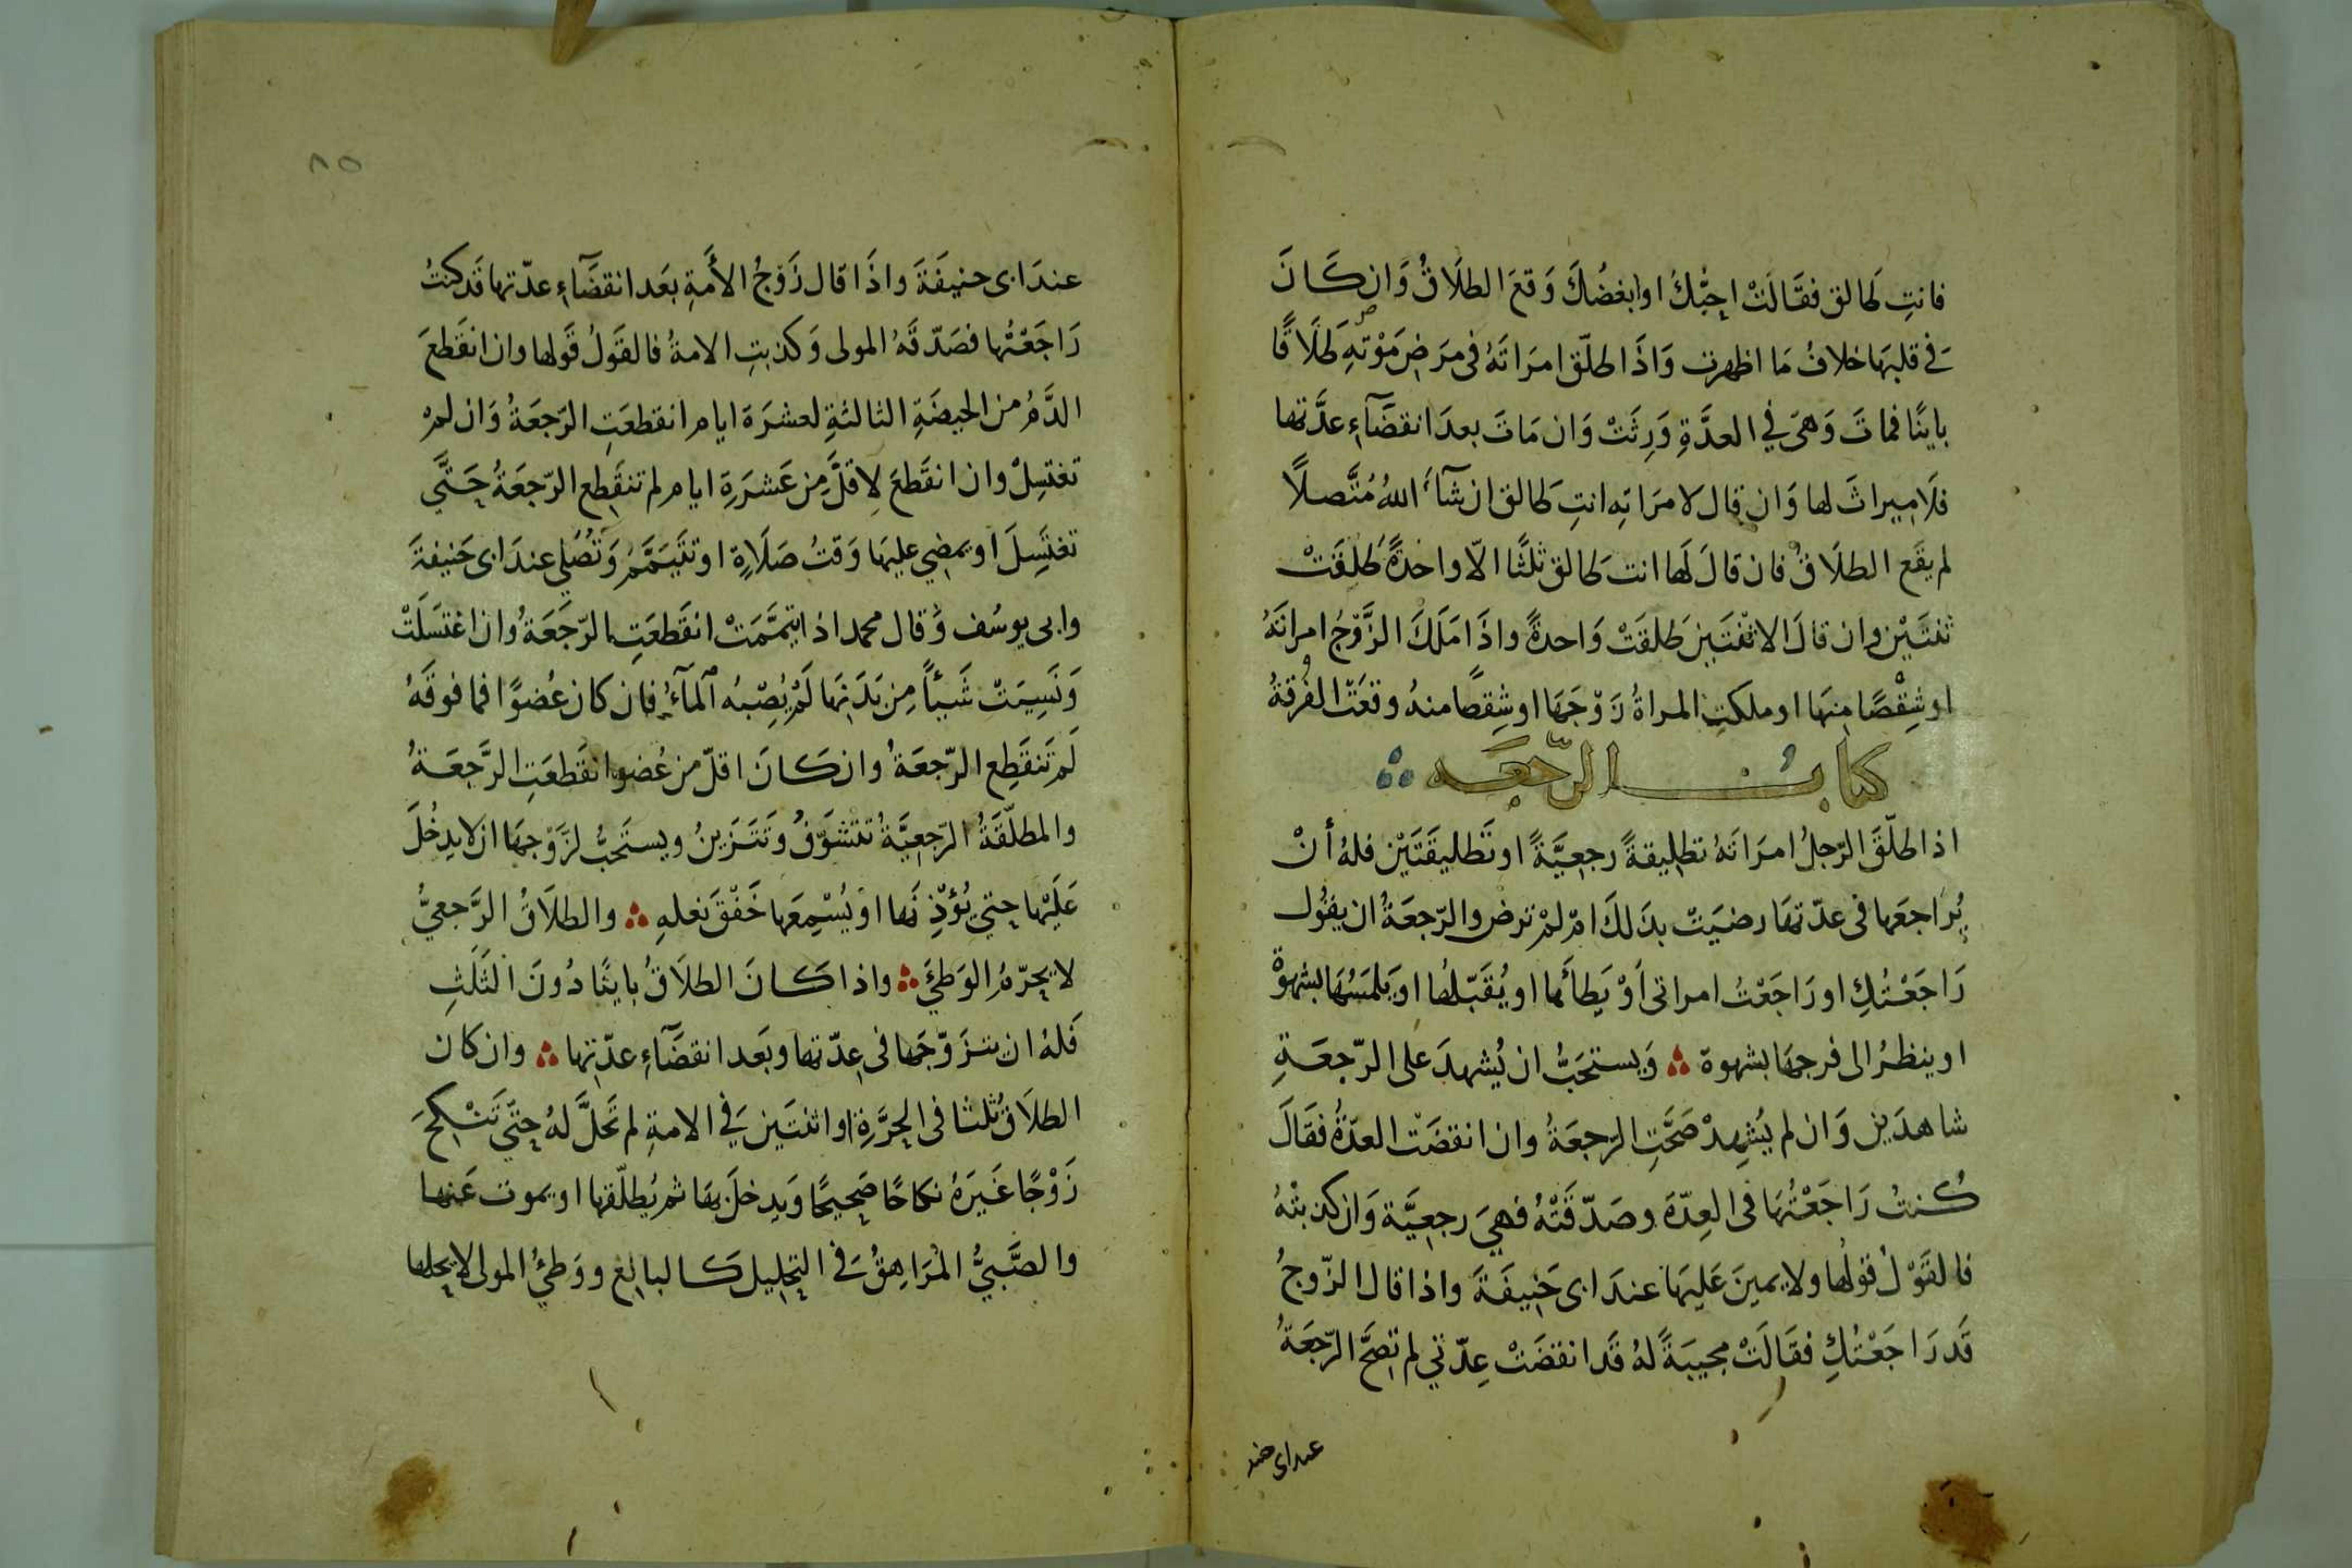 فانتِ طالق فقَالَتْ احِبُّكَ اوابغضُكَ وَقعَ الطلَاقُ وَان كَانَ
فے قلبهَا خلافُ مَا اظهرت وَاذَا طلّق امرَاتَهُ فى مرَضِ مَوْتهِ طَلَاقًا
باينًا فماتَ وَهىَ في العدَّةِ وَرِثَتْ وَان مَاتَ بعدَ انقضَآءِ عدَّتها
فلَا ميراثَ لها وَان قال لامرَاتهِ انتِ طالق ان شآءَ اللهُ مُتَّصلًا
لم يقَع الطلَاقُ فان قالَ لَها انت طَالق ثلثًا الّا واحدةً طَلقَتْ
ثنتَيْن وان قالَ الا ثْنتَيْن طَلقَتْ وَاحدةً واذَا مَلَكَ الزَّوْجُ امراتَهُ
اوشِقْصًا منهَا او ملكتِ المراةُ زَوْجَهَا اوشِقصًا منهُ وقعَتْ الفُرقةُ
كتابُ الرّجعَه
اذا طلّقَ الرّجلُ امرَاتَهُ تطليقةً رجعيَّةً اوتَطليقَتَيْن فلهُ أنْ
يُرَاجعَها فى عدّتهَا رضيَتْ بذلكَ امْ لمْ ترض والرّجعَةُ ان يقُول
رَاجَعْتُكِ او رَاجَعْتُ امراتى اَوْ يَطأَهَا او يُقَبّلهُا او يَلمَسُهَا بشهوةْ
او ينظرُ الى فرجهَا بشهوة ؞ وَيستحَبُّ ان يُشهدَ على الرّجعَةِ
شاهدَين وَان لم يُشهِدْ صَحَّتِ الرّجعَةُ وان انقضَت العدّةُ فقَالَ
كُنتُ رَاجَعْتُهَا فى العِدّةِ وصَدّقَتْهُ فهيَ رجعيَّة وَان كذبتْهُ
فالقَوْلُ قولُها ولا يمينَ عَليهَا عندَ ابى حَنِيفَةَ واذا قال الزّوجُ
قَد رَاجَعْتُكِ فقَالَتْ مجيبَةً لهُ قَد انقضَتْ عِدّتي لم تصحَّ الرّجعَةُ
عندابى حنيفَةَ
٨٥
عندَ ابى حنيفَةَ واذَا قال زَوْجُ الأَمةِ بعَد انقضَآءِ عدّتها قَد كنتُ
رَاجَعْتُها فصَدّقَهُ المولى وَكذبتِ الامةُ فالقَولُ قَولها وان انقَطعَ
الدَّمُ من الحيضَةِ الثالثةِ لعشرَة ايام انقطعَتِ الرّجعَةُ وَان لمْ
تغتسِلْ وان انقَطعَ لِاقلَّ مِن عَشرَةِ ايام لم تنقَطِع الرّجعَةُ حَتَّي
تغتَسِلَ او يمضي عليهَا وَقتُ صَلَاةٍ او تتيَمَّمُ وَتُصَلي عندَ ابى حَنيفةَ
وابى يوسُف وَقال محمد اذا تيمَّمَتْ انقَطعَتِ الرّجعَةُ وان اغتسَلَتْ
وَنَسِيَتْ شَيئًا مِن بَدَنِهَا لَمْ يُصِبْهُ اَلمآءُ فان كان عُضوًا فما فوقَهُ
لَم تَنقَطِع الرّجعَةُ وان كَانَ اقلّ من عُضوٍ انقَطعَتِ الرَّجعَةُ
والمطلّقَةُ الرّجعيَّةُ تتشَوَّفُ وَتَتَزَينُ ويستَحبُّ لزَوْجهَا ان لا يدخُلَ
عَلَيْها حتي يُؤذِنَها اوَ يُسْمِعَها خَفْقَ نعلهِ ؞ والطلَاقُ الرَّجعيُّ
لا يحرّمُ الوَطئَ ؞ واذا كَانَ الطلَاقُ باينًا دُونَ الثَلَثِ
فَلهُ ان يتزَوّجَها فى عِدّتها وبَعد انقضَآءِ عدّتها ؞ وان كان
الطلَاقُ ثلثا فى الحرَّةِ او اثنتَين فے الامةِ لم تحَلَّ لهُ حتّي تَنْكِحَ
زَوْجًا غَيرَهُ نكاحًا صَحيحًا وَيدخلَ بهَا ثم يُطلّقها او يموت عَنها
والصَّبيُّ المُرَاهِقُ فے التحليل كَالبالغ ووَطئُ المولى لا يحلها